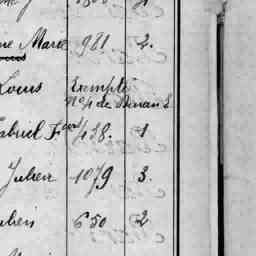 Marie 981 2.
Louis Exempté
No 4 de Dinan E
Gabriel F 438. 1
Julien 1079 3.
650 2